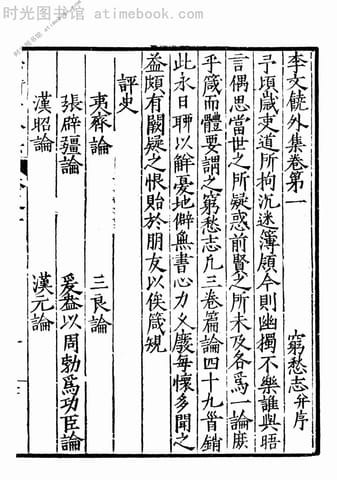 时光图书馆 atimebook.com
李文饒外集卷第一 窮愁志并序
予頃歲吏道所拘沉迷簿領今則幽獨不樂誰與晤
言偶思當世之所疑惑前賢之所未及各爲一論庶
乎箴而體要謂之窮愁志凡三卷篇論四十九首銷
此永日聊以解憂地僻無書心力久廢每懷多聞之
益頗有闕疑之恨貽於朋友以俟箴規
評史
夷齊論 三良論
張辟彊論 爰盎以周勃爲功臣論
漢昭論 漢元論
时光图书馆 atimebook.com